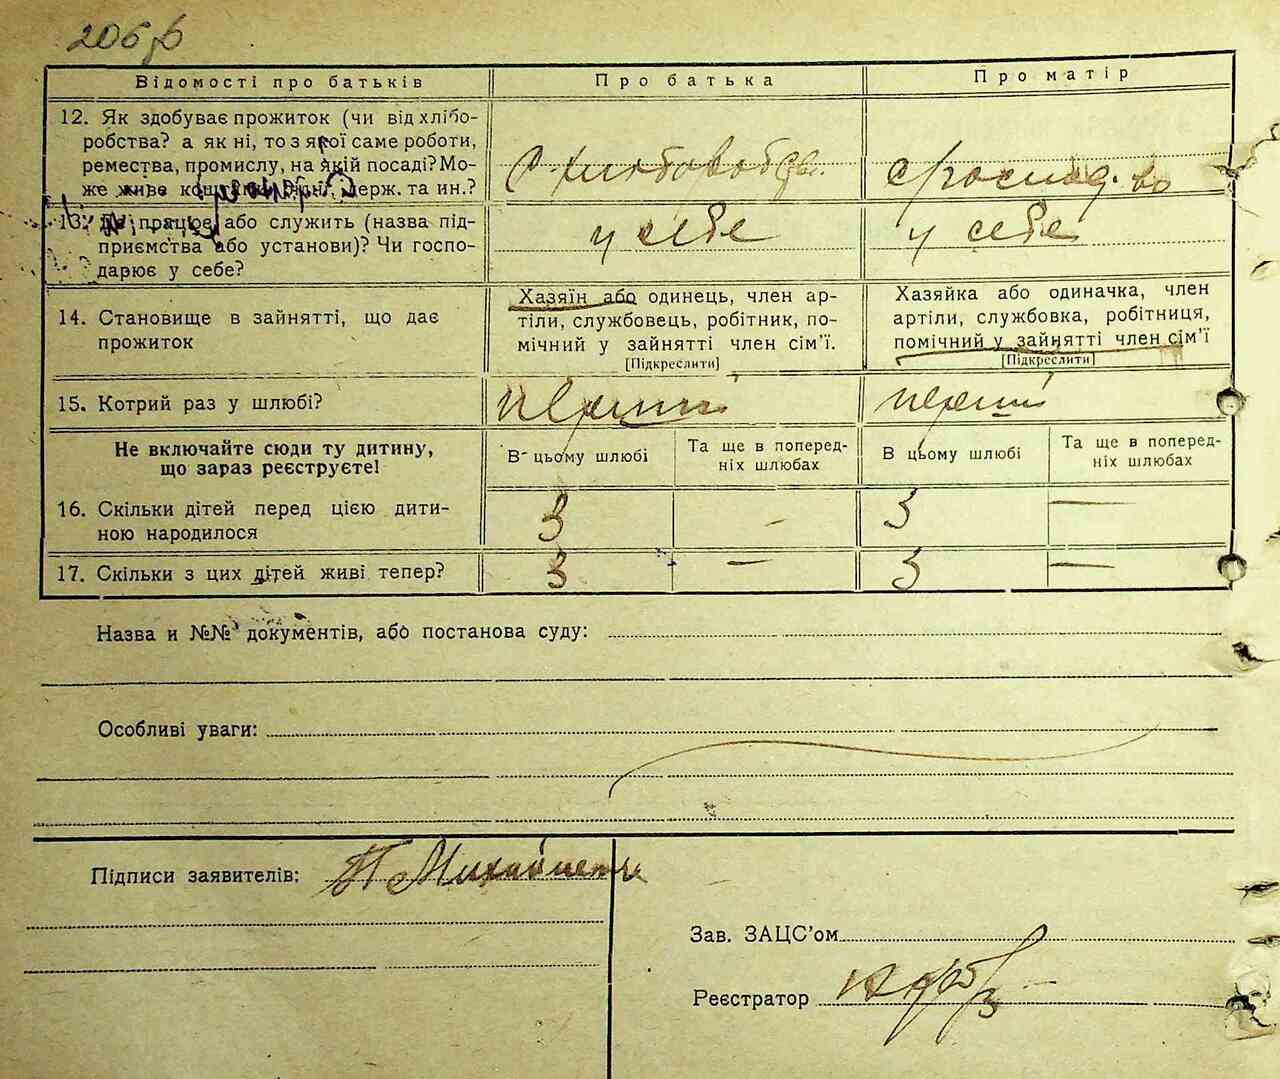 Відомості про батьків
Про батька
Про матір
12. Як здобуває прожиток (чи від хлібо-
робства? а як ні, то з якої саме роботи,
ремества, промислу, на якій посаді? Мо-
же живе держ. та ин.?
13. Де працює або служить (назва під-
приємства або установи)? Чи госпо-
дарює у себе?
у себе
у себе
14. Становище в зайнятті, що дає
прожиток
Хазяїн або одинець, член ар-
тіли, службовець, робітник, по-
мічний у зайнятті член сім'ї.
[Підкреслити]
Хазяйка або одиначка, член
артіли, службовка, робітниця,
помічний у зайнятті член сім'ї
[Підкреслити]
15. Котрий раз у шлюбі?
перший
перший
Не включайте сюди ту дитину,
що зараз реєструєте!
В цьому шлюбі
Та ще в поперед-
ніх шлюбах
В цьому шлюбі
Та ще в поперед-
ніх шлюбах
16. Скільки дітей перед цією дити-
ною народилося
3
-
3
—
17. Скільки з цих дітей живі тепер?
3
—
3
—
Назва и №№ документів, або постанова суду:
Особливі уваги:
Підписи заявителів:
Зав. ЗАЦС'ом
Реєстратор